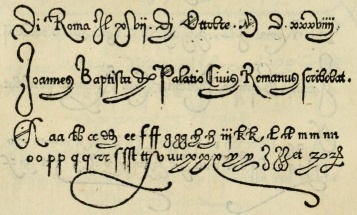 Di Roma Il xvij. di Ottobre. M D xxxviiij.
Joannes Baptista de Palatio Civis Romanus scribebat.
A aa bb cc dd ee fff ggg hh iij kk ll mm nn
oo pp qq rr sſſt tt v uu xxx yy Z & et zz